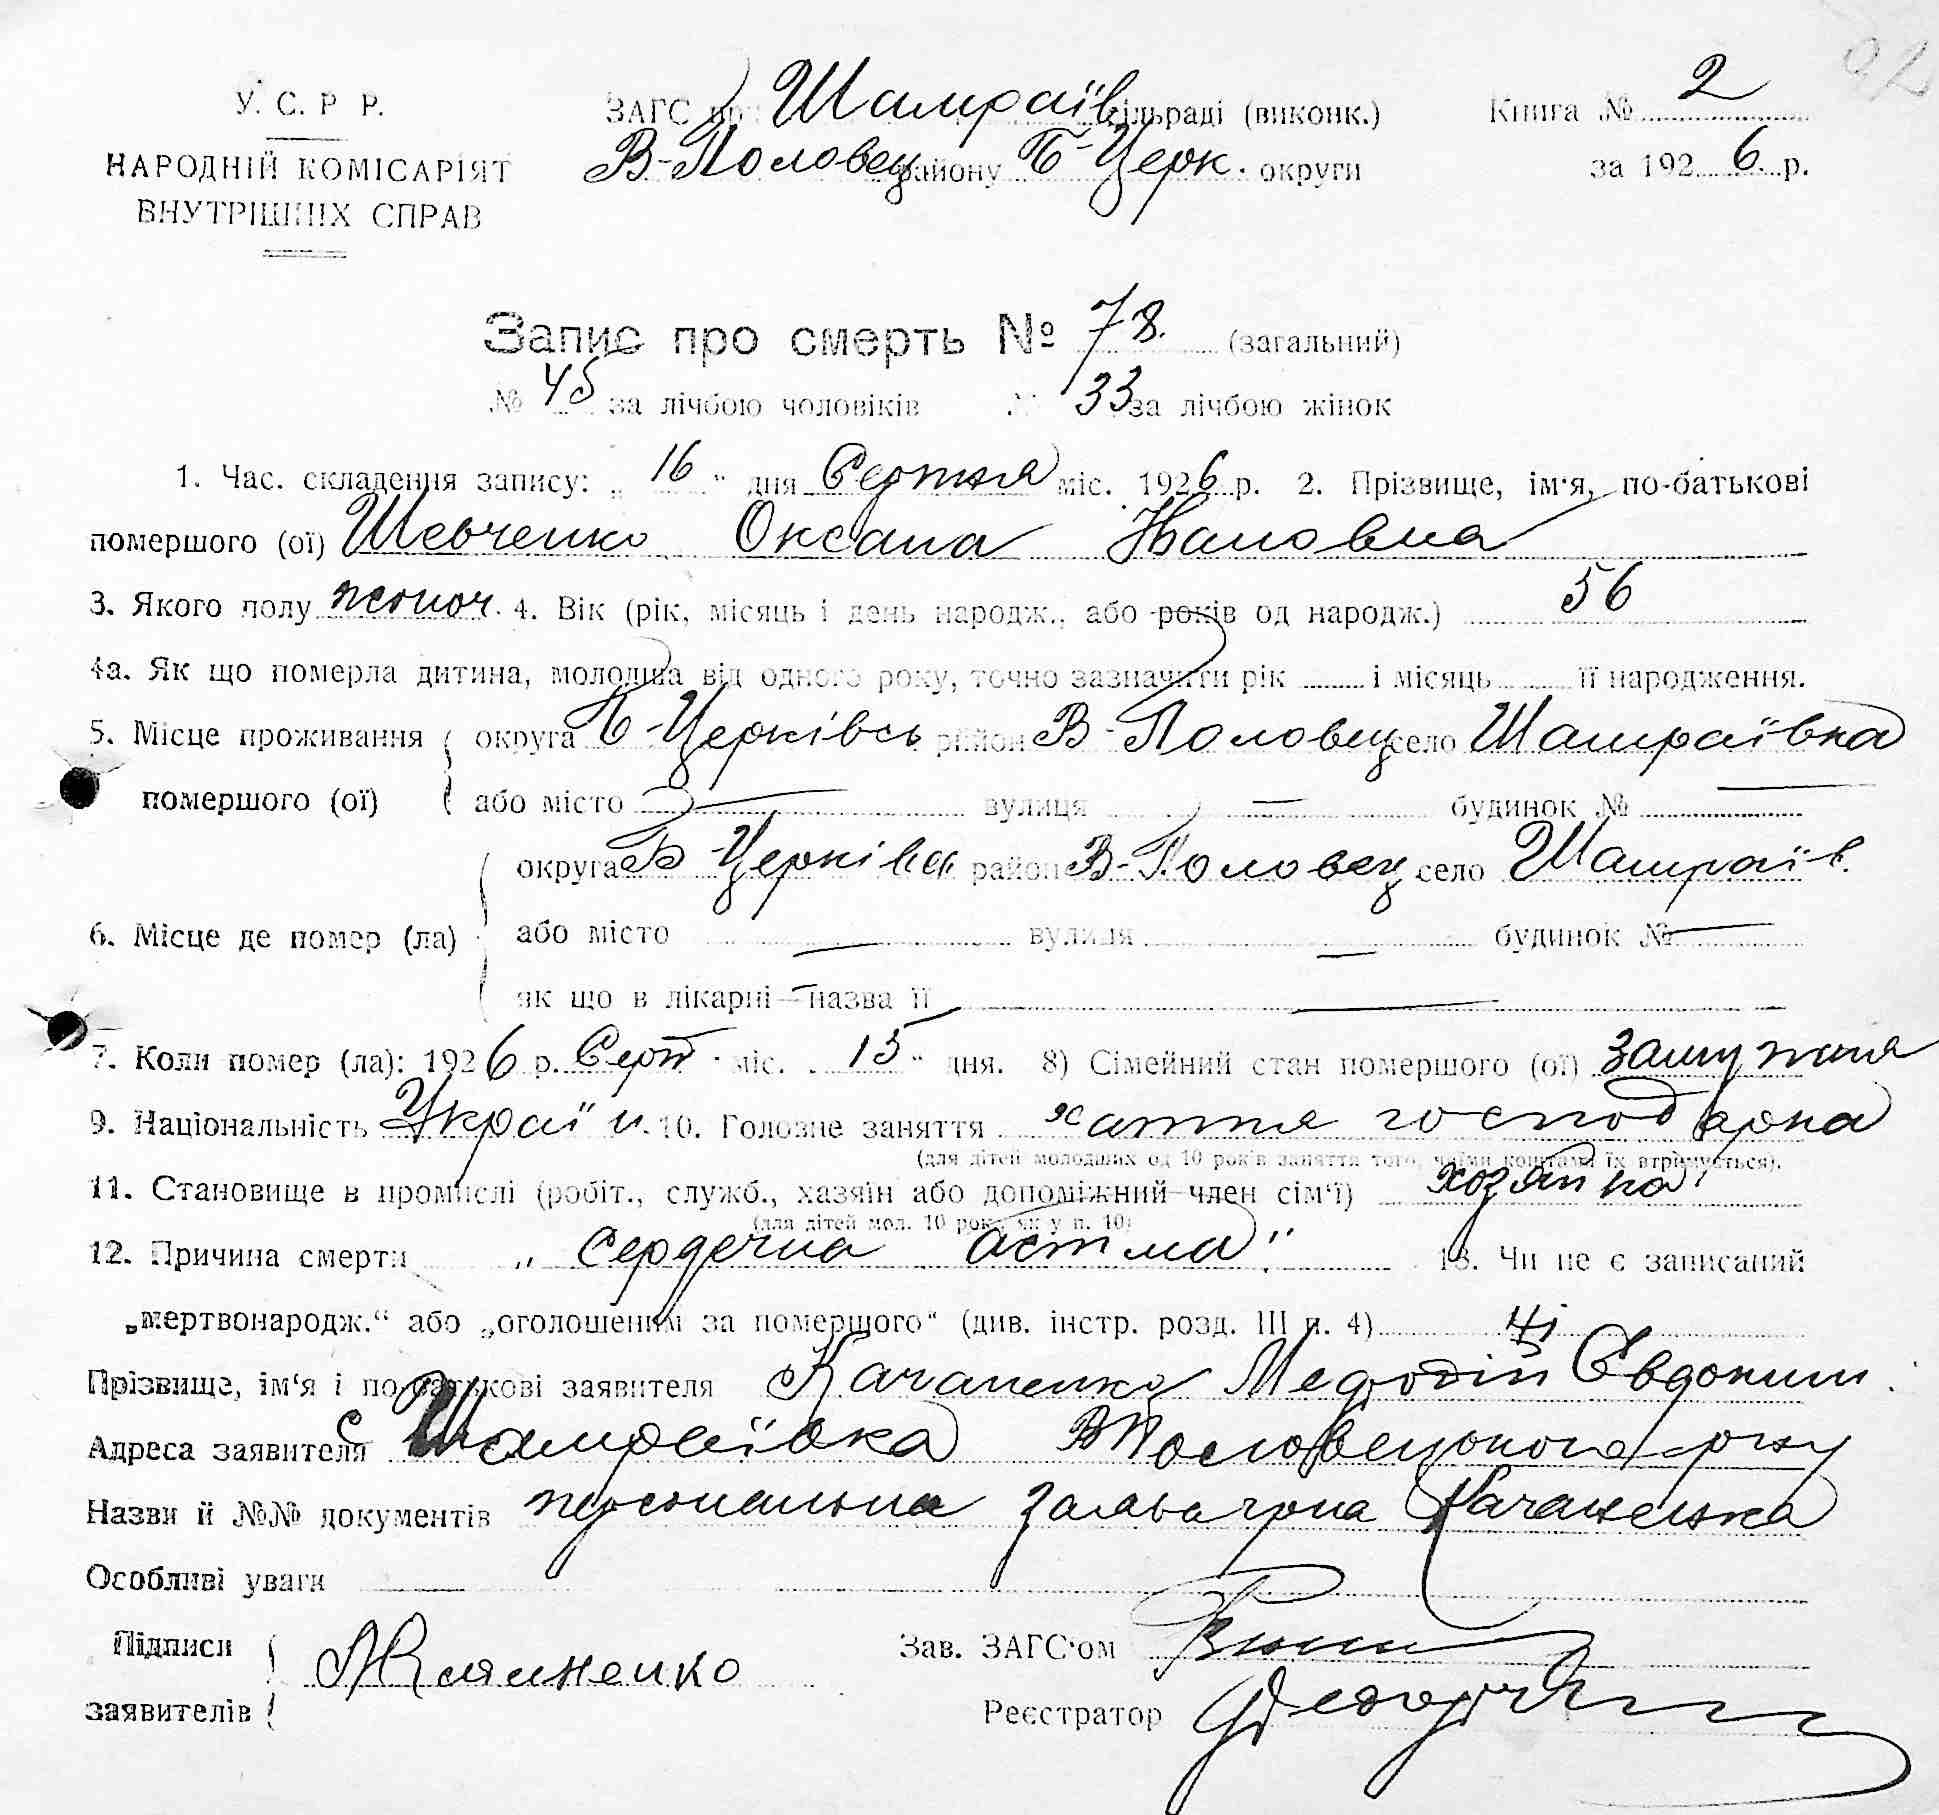 92
У. С. Р Р.
НАРОДНІЙ КОМІСАРІЯТ
ВНУТРІШНІХ СПРАВ
ЗАГС при Шамраїв сільраді (виконк.) Книга № 2
В-Половец району Б-Церк. округи за 1926 р.
Запис про смерть № 78. (загальний)
№ 45 за лічбою чоловіків № 33 за лічбою жінок
1. Час. складення запису: „16“ дня Серпня міс. 1926 р. 2. Прізвище, ім'я, по-батькові
помершого (ої) Шевченко Оксана Івановна
3. Якого полу жіноч. 4. Вік (рік, місяць і день народж., або років од народж.) 56
4а. Як що померла дитина, молодша від одного року, точно зазначити рік і місяць її народження.
5. Місце проживання помершого (ої) округа Б-Церківсь район В-Половец село Шамраївка
або місто — вулиця — будинок № —
6. Місце де помер (ла) округа Б-Церківск район В-Половец село Шамраїв.
або місто — вулиця — будинок № —
як що в лікарні—назва її —
7. Коли помер (ла): 1926 р. Серп. міс. 15“ дня. 8) Сімейний стан помершого (ої) замужня
9. Національність Україн. 10. Головне заняття хатня господарка
(для дітей молодших од 10 років заняття того, чиїми коштами їх втримується).
11. Становище в промислі (робіт., служб., хазяїн або допоміжний член сім'ї) хозяйка
(для дітей мол. 10 рок. як у п. 10)
12. Причина смерти „сердечна астма“. 13. Чи не є записаний
„мертвонародж.“ або „оголошеним за померщого“ (див. інстр. розд. III п. 4) Ні
Прізвище, ім'я і по батькові заявителя Качаненко Мефодій Євдоким.
Адреса заявителя с Шамраївка ВПоловецького р-ну
Назви й №№ документів персональна Качаненка
Особливі уваги —
Підписи заявителів
Зав. ЗАГС'ом
Реєстратор